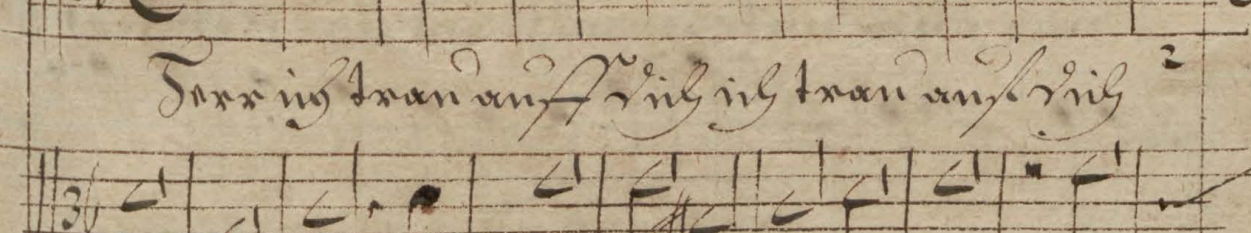 Herr ich trau auff dich ich trau auf dich 2